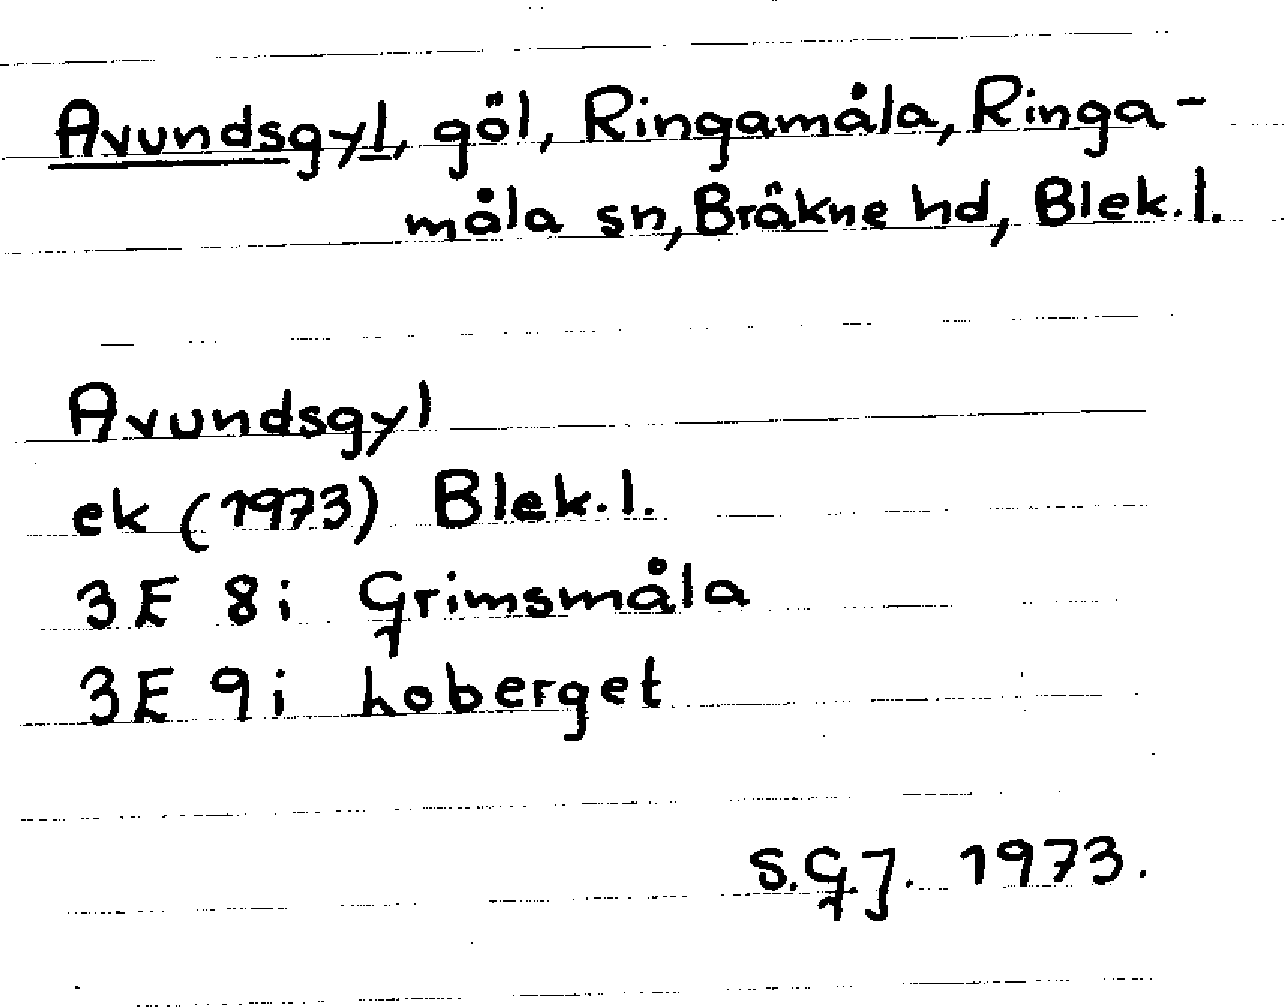 Avundsgyl, göl, Ringamåla, Ringa-
måla sn, Bräkne hd, Blek. l.
Avundsgyl
ek (1973) Blek. l.
3E 8i Grimsmåla
3E 9i Loberget
S.G.J. 1973.